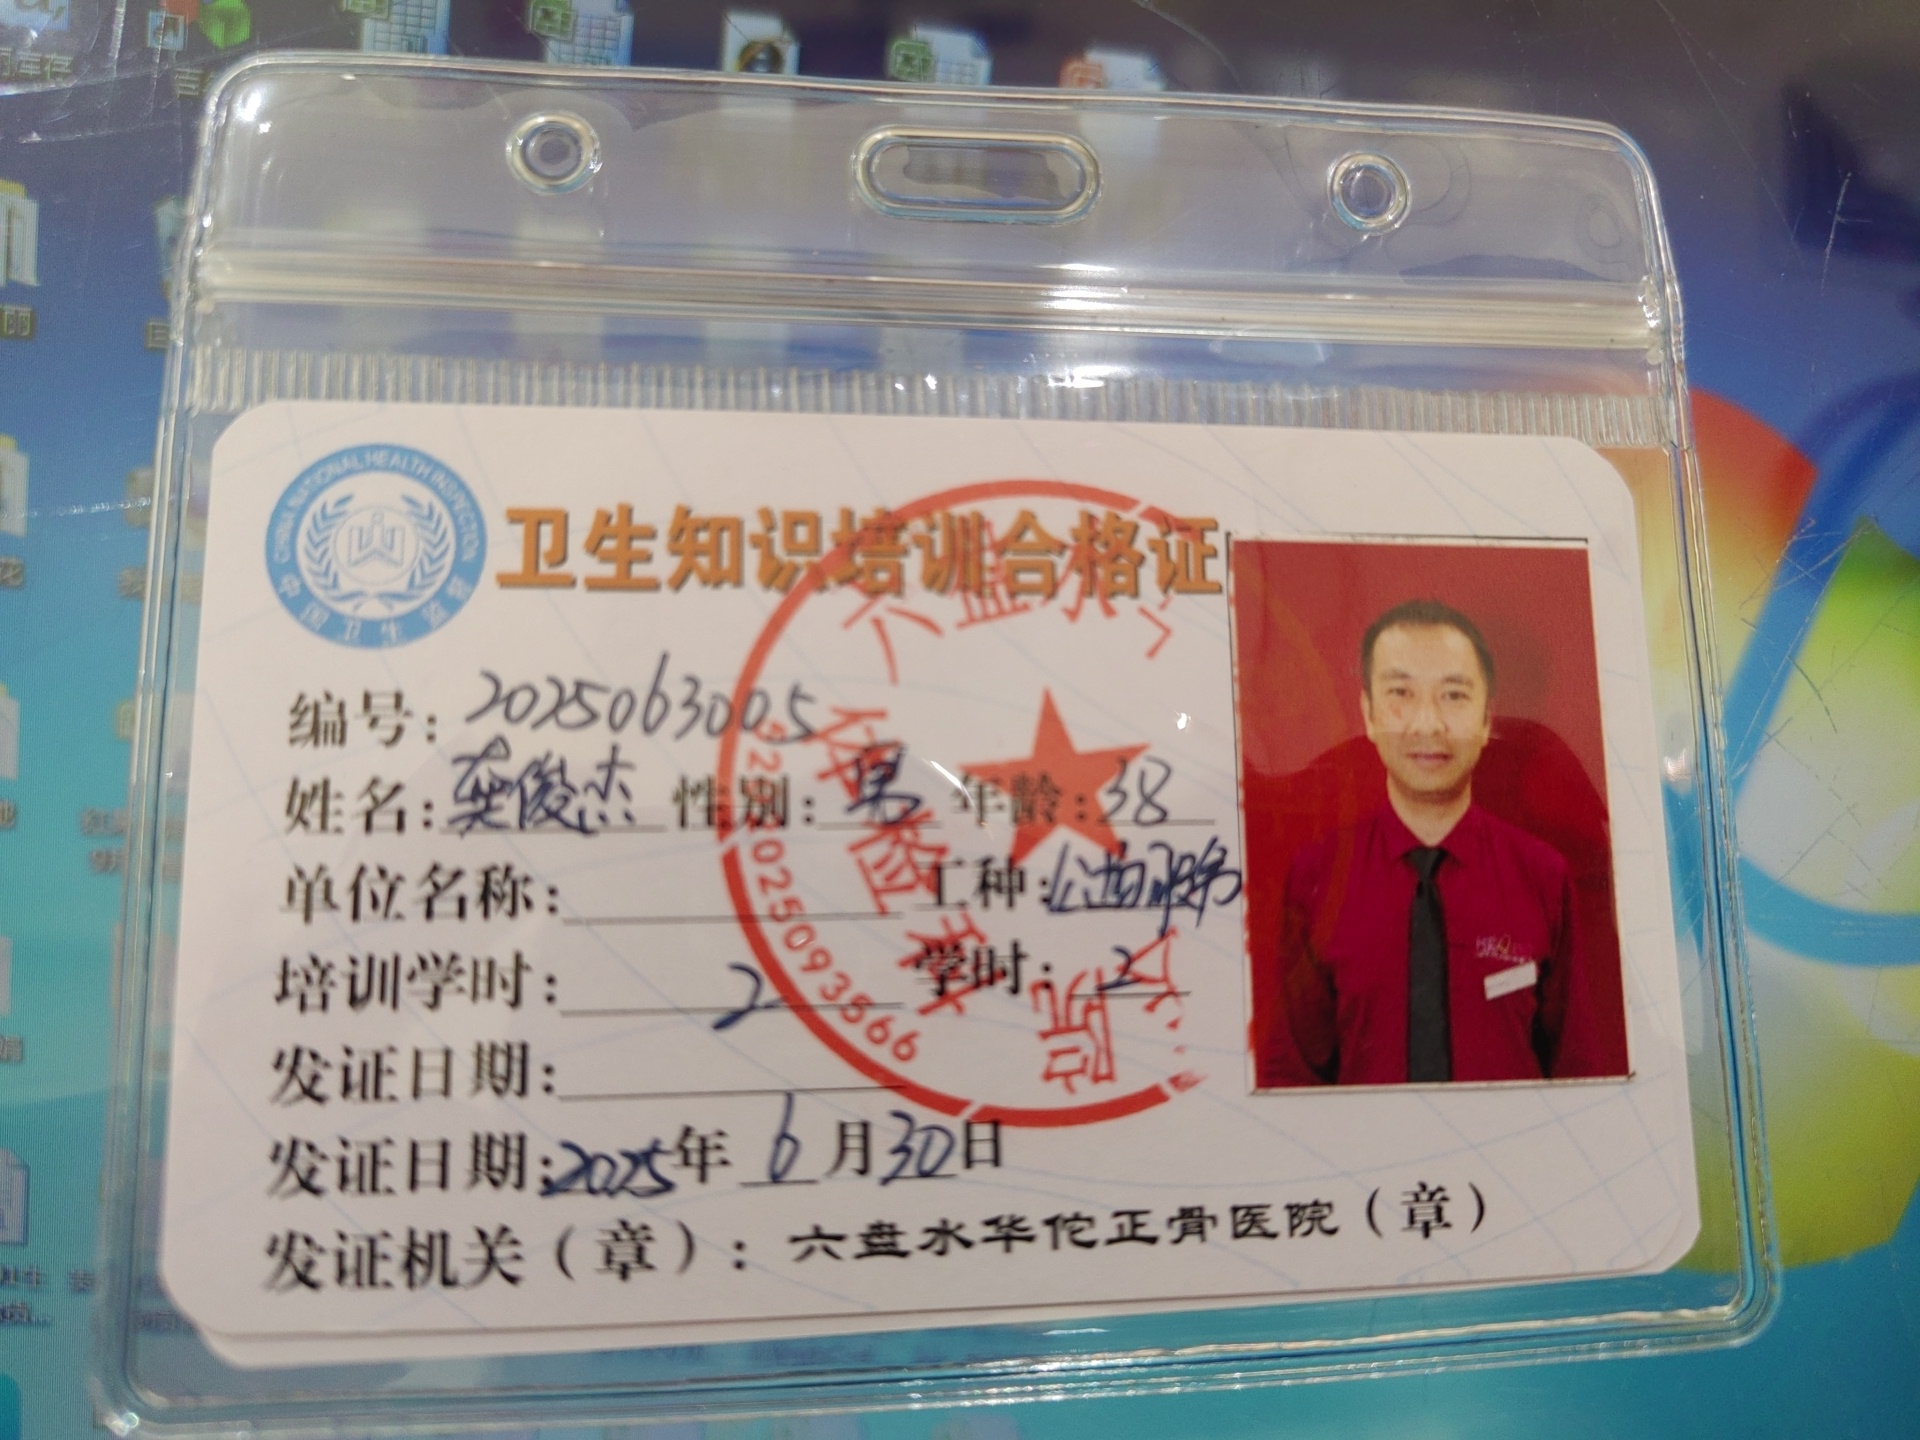 CHINA NATIONAL HEALTH INSPECTION
中国卫生监督
卫生知识培训合格证
编号：2025063005
姓名：龚俊杰 性别：男 年龄：38
单位名称： 工种：公共服务
培训学时：2 学时：2
发证日期：
发证日期：2025年6月30日
发证机关（章）：六盘水华佗正骨医院（章）
六盘水
体检科
院
5202025093566